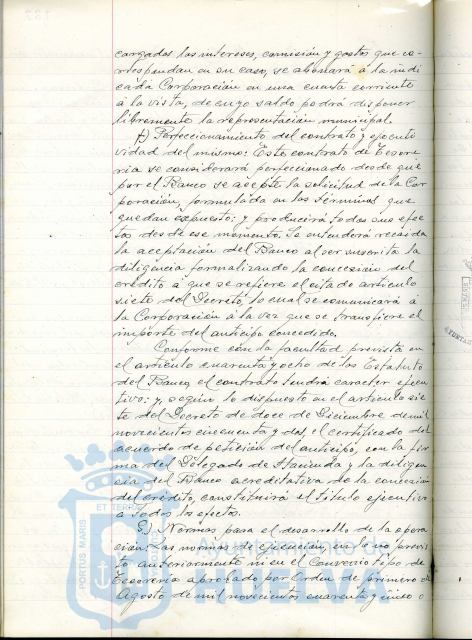 cargados los intereses, comisión y gastos que co-
rrespondan en su caso, se abonará á la indi
cada Corporación en una cuenta corriente
a la vista, de cuyo saldo podrá disponer
libremente la representación municipal.
f) Perfeccionamiento del contrato y ejecuti
vidad del mismo: Este contrato de Tesore
ria se considerará perfeccionado desde que
por el Banco se acepte la solicitud de la Cor
poración, formulada en los términos que
quedan expuesto; y producirá todos sus efec
tos desde ese momento. Se entenderá recaida
la aceptación del Banco al ser suscrita la
diligencia formalizando la concesión del
crédito a que se refiere el citado articulo
siete del Decreto, lo cual se comunicará a
la Corporación a la vez que se transfiere el
importe del anticipo concedido.
Conforme con la facultad prevista en
el articulo cuarenta y ocho de los Estatutos
del Banco, el contrato tendrá caracter ejecu
tivo: y, según lo dispuesto en el articulo sie
te del Decreto de doce de Diciembre de mil
novecientos cincuenta y dos, el certificado del
acuerdo de petición del anticipo, con la fir
ma del Delegado de Hacienda y la diligen
cia del Banco acreditativa de la concesión
del crédito, constituirá el titulo ejecutivo
a todos los efectos.
g) Normas para el desarrollo de la opera
ción. Las normas de ejecución, en lo no previs
to anteriormente ni en el Convenio tipo de
Tesoreria aprobado por Orden de primero de
Agosto de mil novecientos cuarenta y cinco o
PORTUS MARIS ET TERRAE
Ayuntamiento de
HUELVA